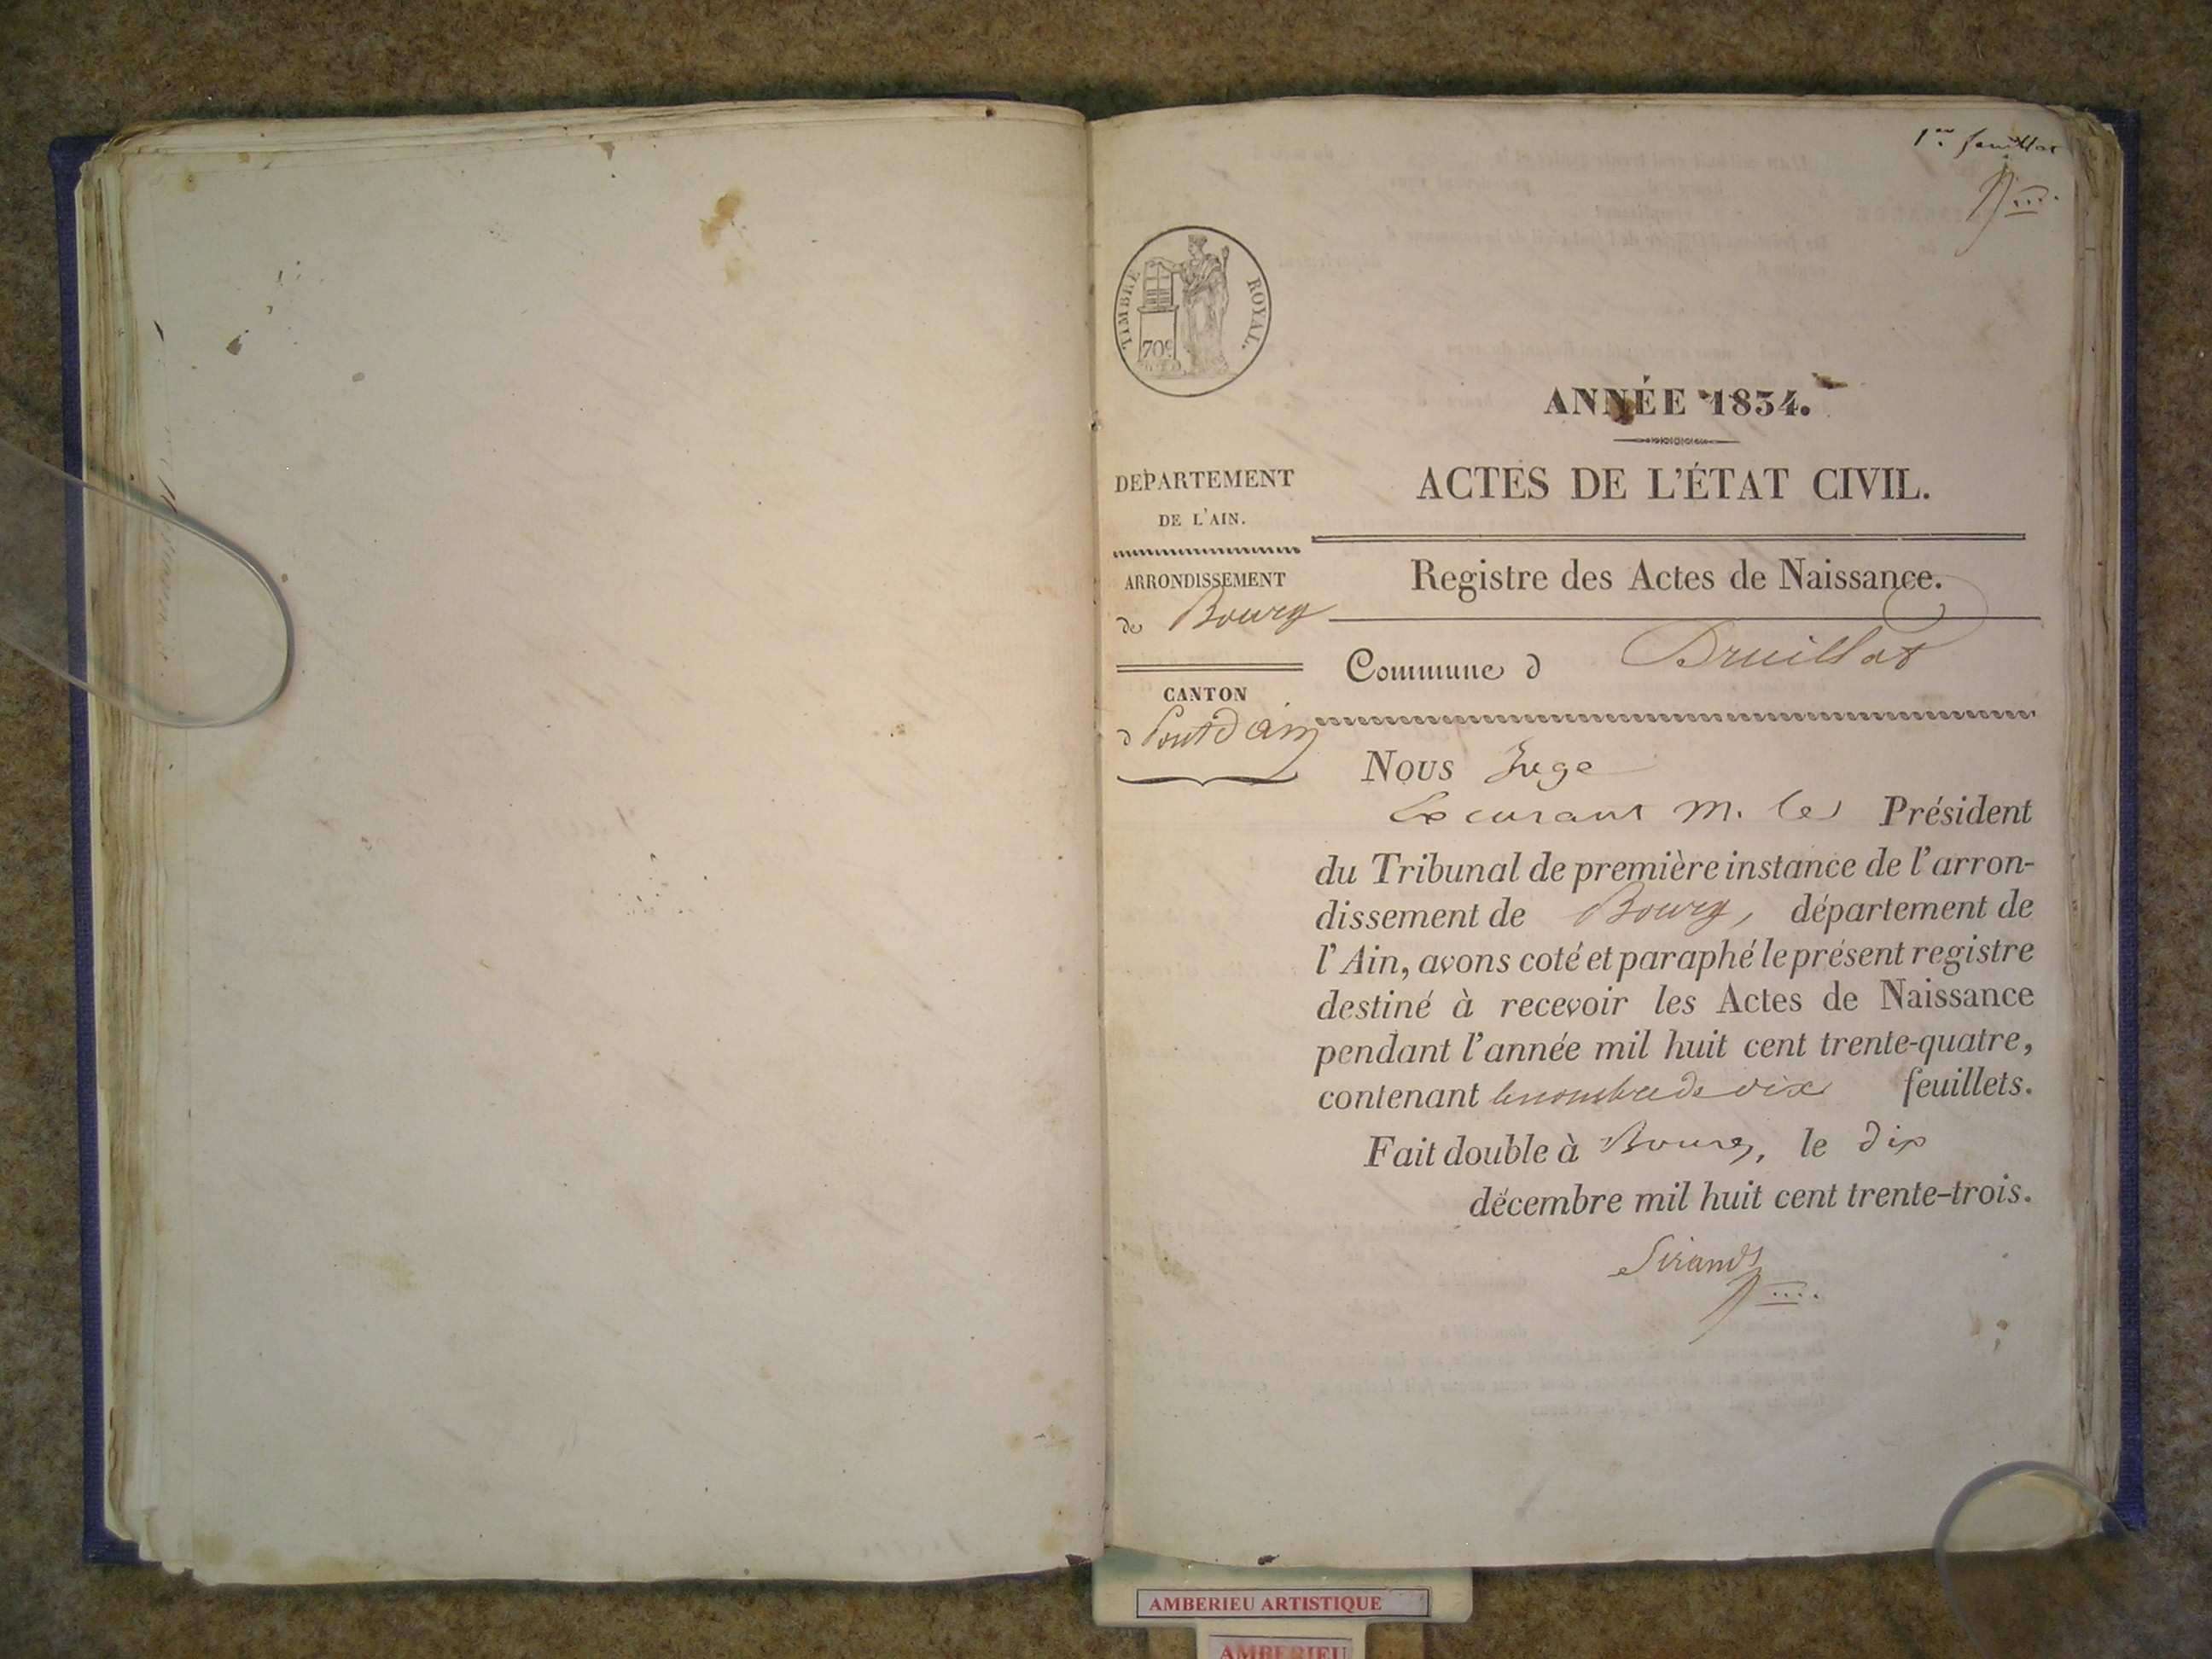 1er feuillet
TIMBRE ROYAL.
70c
ANNÉE 1834.
ACTES DE L'ÉTAT CIVIL.
DEPARTEMENT
DE L'AIN.
ARRONDISSEMENT
de Bourg
CANTON
d Pont d'ain
Registre des Actes de Naissance.
Commune d Druillat
Nous Juge
Excusant M. le Président
du Tribunal de première instance de l'arron-
dissement de Bourg, département de
l'Ain, avons coté et paraphé le présent registre
destiné à recevoir les Actes de Naissance
pendant l'année mil huit cent trente-quatre,
contenant le nombre de dix feuillets.
Fait double à Bourg, le dix
décembre mil huit cent trente-trois.
Sirand
AMBERIEU ARTISTIQUE
AMBERIEU